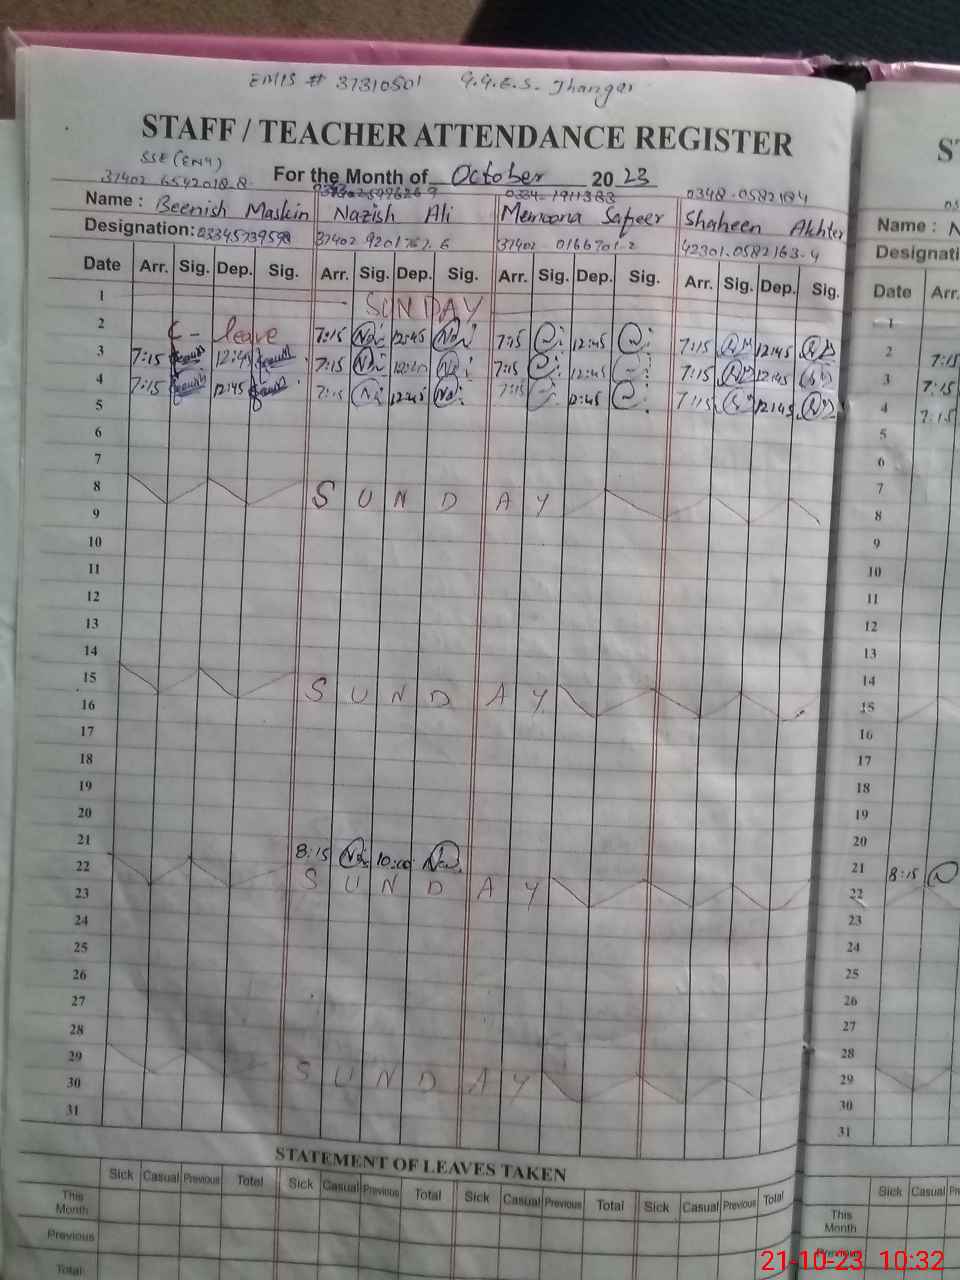 EMIS # 37310501 G.G.E.S. Jhangar
STAFF / TEACHER ATTENDANCE REGISTER
SSE (ENG)
37402 6542018 8. For the Month of October 20 23
0334-1911383 0348-0582184
Name : Beenish Maskin Nazish Ali Memoona Safeer Shaheen Akhter
Name : N
Designation: 03345739598 37402 9201762.6 37402 0166701-2 42301.0582163-4
Designati
Date Arr. Sig. Dep. Sig. Arr. Sig. Dep. Sig. Arr. Sig. Dep. Sig. Arr. Sig. Dep. Sig.
Date Arr.
1 SUNDAY
2 C - leave 7:15 12:45 7:15 12:45 7:15 12:45
3 7:15 12:45 7:15 7:15 12:45 7:15 12:45
4 7:15 12:45 7:15 12:45 7:15 12:45 7:15 12:45
5
6
7
8 SUNDAY
9
10
11
12
13
14
15 SUNDAY
16
17
18
19
20
21 8:15 10:00
22 SUNDAY
23
24
25
26
27
28
29 SUNDAY
30
31
1
2 7:15
3 7:15
4 7:15
5
6
7
8
9
10
11
12
13
14
15
16
17
18
19
20
21 8:15
22
23
24
25
26
27
28
29
30
31
STATEMENT OF LEAVES TAKEN
Sick Casual Previous Total Sick Casual Previous Total Sick Casual Previous Total Sick Casual Previous Total
Sick Casual
This Month
This Month
Previous
Previous
Total
21-10-23 10:32